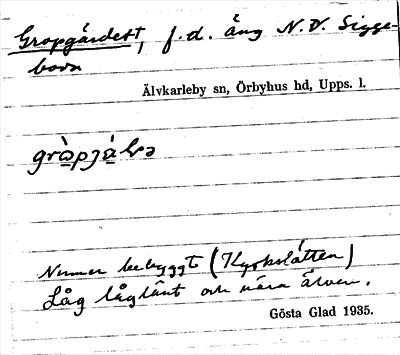 Gropgärdet, f.d. äng N.V. Sigge-
boda
Älvkarleby sn, Örbyhus hd, Upps. l.
Numer bebyggt (Kyrkslätten)
Låg låglänt och nära älven.
Gösta Glad 1935.